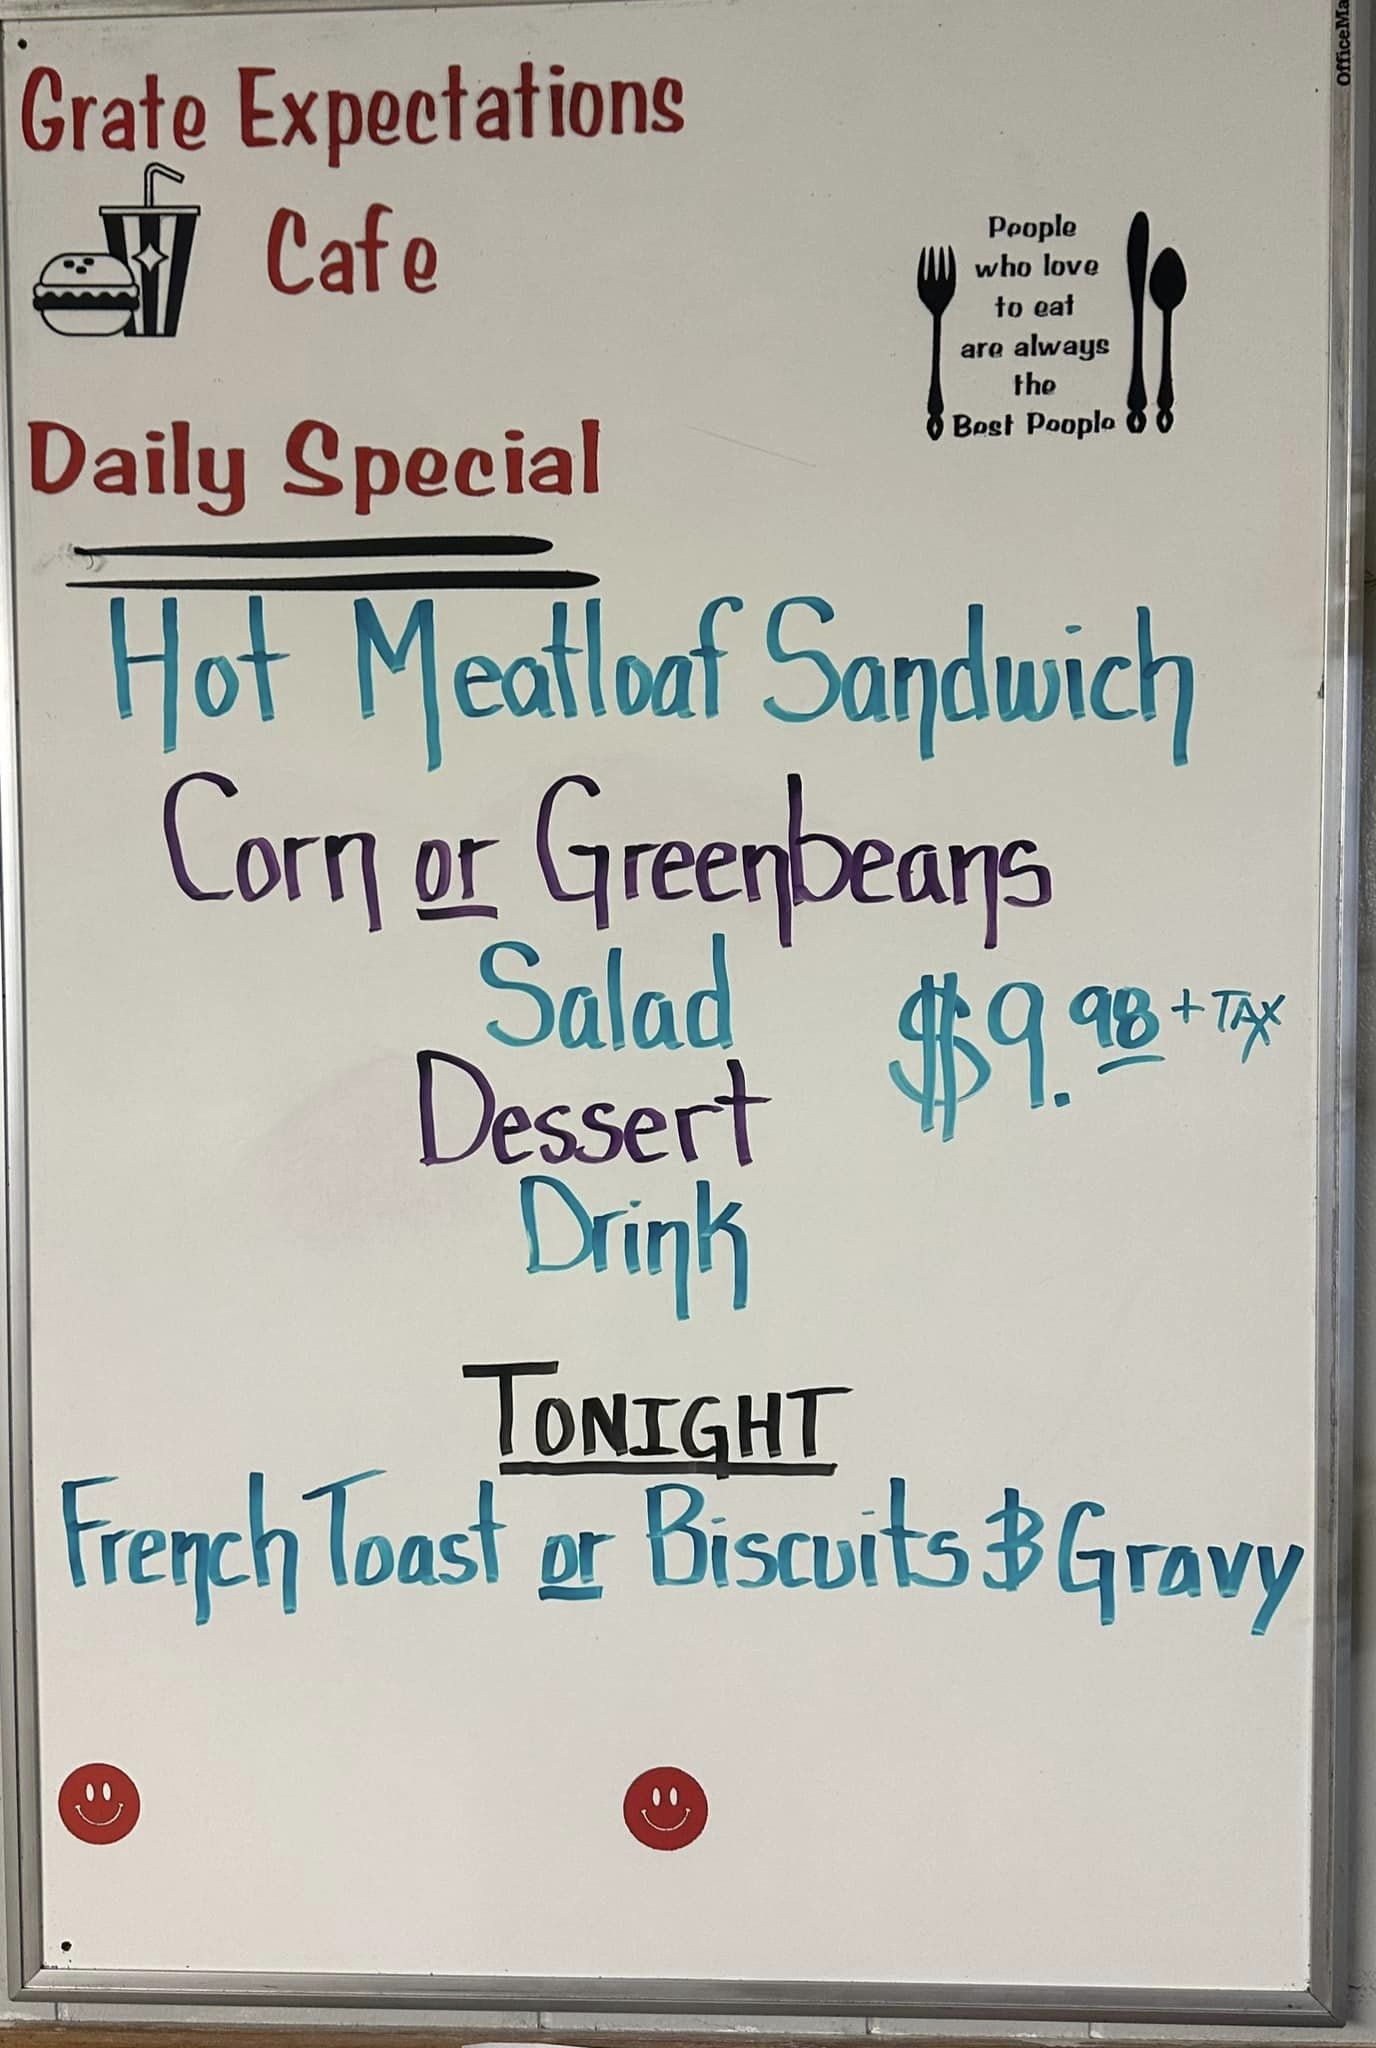 OfficeMa
Grate Expectations
Cafe
People
who love
to eat
are always
the
Best People
Daily Special
Hot Meatloaf Sandwich
Corn or Greenbeans
Salad
$9.98 + TAX
Dessert
Drink
TONIGHT
French Toast or Biscuits & Gravy